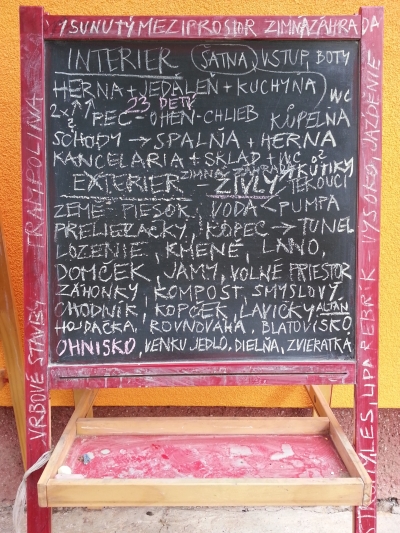 1 SUNUTÝ MEZIPROSTOR ZIMNÁ ZÁHRADA
INTERIÉR (ŠATŇA) VSTUP, BOTY
HERNA + JEDÁLEŇ + KUCHYŇA
WC
2x
23 DETÍ
PEC - OHEŇ - CHLIEB KÚPEĽŇA
SCHODY → SPALŇA + HERNA
KANCELÁRIA + SKLAD + WC
KÚTIKY
ZIMNÁ ZÁHRADA
EXTERIÉR - ŽIVLY TEKOUCÍ
ZEME PIESOK, VODA < PUMPA
PRELIEZAČKY, KOPEC → TUNEL
LOZENIE, KMENE, LANO,
DOMČEK, JAMY, VOĽNÉ PRIESTOR
ZÁHONKY, KOMPOST, SMYSLOVÝ
CHODNÍK, KOPČEK, LAVIČKY ALTÁN
HOJDAČKA, ROVNOVÁHA, BLATOVISKO
OHNISKO, VENKU JEDLO, DIELŇA, ZVIERATKA
VRBOVÉ STAVBY TRAMPOLÍNA
STROMY LES LIPA REBRÍK - VYSOKO, JAZDENIE